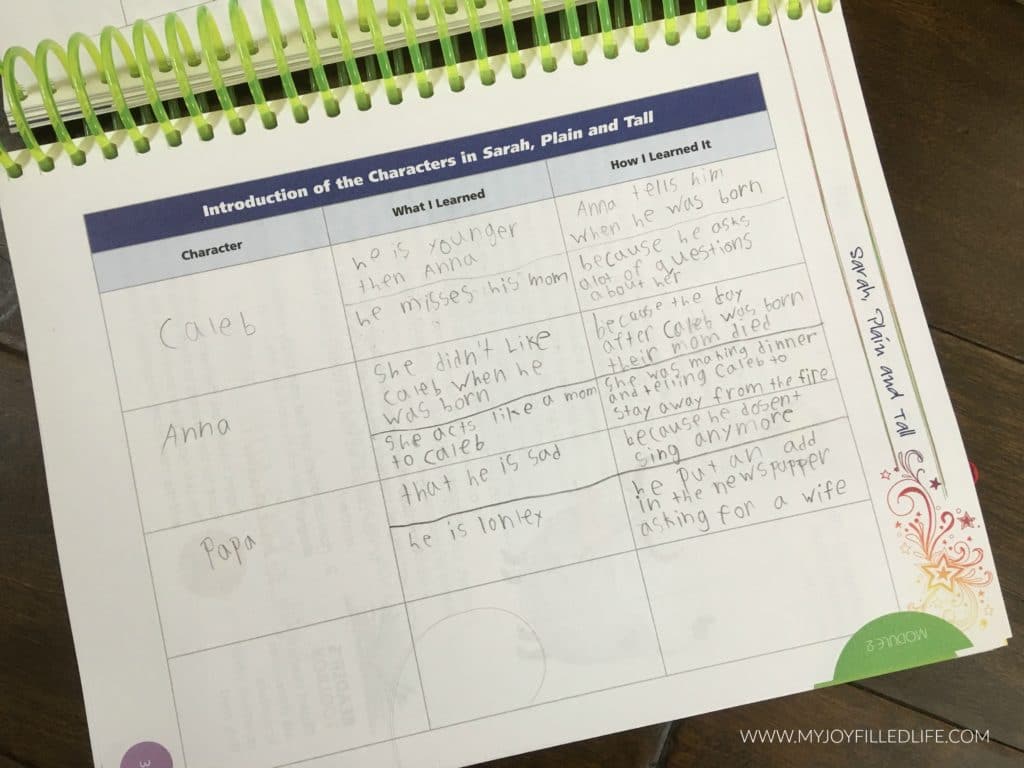 Introduction of the Characters in Sarah, Plain and Tall
Character
What I Learned
How I Learned It
Caleb
he is younger
then Anna
Anna tells him
when he was born
he misses his mom
because he asks
alot of questions
about her
Anna
She didn't Like
Caleb when he
was born
because the day
after Caleb was born
their mom died
She acts like a mom
to Caleb
She was making dinner
and telling Caleb to
stay away from the fire
Papa
that he is sad
because he dosent
sing anymore
he is lonley
he put an add
in the newspupper
asking for a wife
Sarah, Plain and Tall
MODULE 2
3
WWW.MYJOYFILLEDLIFE.COM